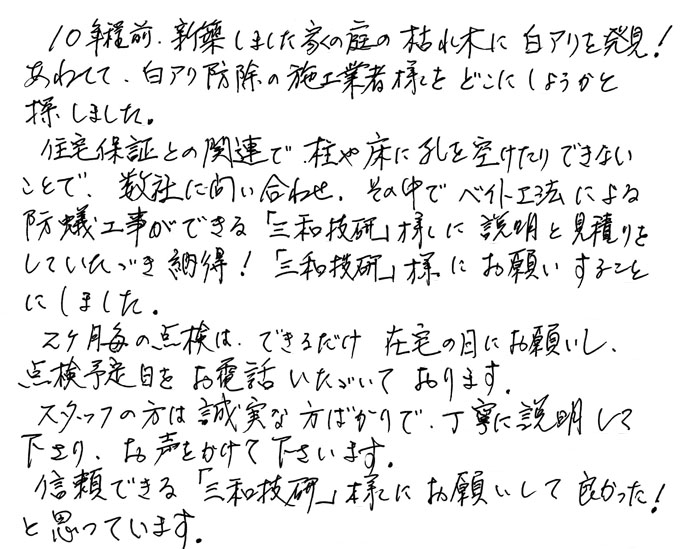 10年程前、新築しました家の庭の枯れ木に白アリを発見!
あわてて、白アリ防除の施工業者様をどこにしようかと
探しました。
住宅保証との関連で、柱や床に孔を空けたりできない
ことで、数社に問い合わせ、その中でベイト工法による
防蟻工事ができる「三和技研」様に説明と見積りを
していただき納得!「三和技研」様にお願いすること
にしました。
2ケ月毎の点検は、できるだけ在宅の日にお願いし、
点検予定日をお電話いただいております。
スタッフの方は誠実な方ばかりで、丁寧に説明して
下さり、お声をかけて下さいます。
信頼できる「三和技研」様にお願いして良かった!
と思っています。